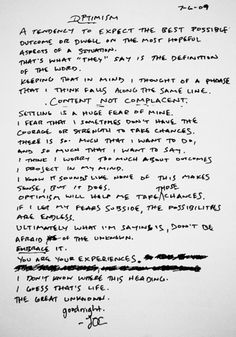 7-6-09
OPTIMISM
A TENDENCY TO EXPECT THE BEST POSSIBLE
OUTCOME OR DWELL ON THE MOST HOPEFUL
ASPECTS OF A SITUATION.
THAT'S WHAT "THEY" SAY IS THE DEFINITION
OF THE WORD.
KEEPING THAT IN MIND, I THOUGHT OF A PHRASE
THAT I THINK FALLS ALONG THE SAME LINE.
CONTENT NOT COMPLACENT.
SETTLING IS A HUGE FEAR OF MINE.
I FEAR THAT I SOMETIMES DON'T HAVE THE
COURAGE OR STRENGTH TO TAKE CHANCES.
THERE IS SO MUCH THAT I WANT TO DO,
AND SO MUCH THAT I WANT TO SAY.
I THINK I WORRY TOO MUCH ABOUT OUTCOMES
I PROJECT IN MY MIND.
I KNOW IT SOUNDS LIKE NONE OF THIS MAKES
SENSE, BUT IT DOES.
OPTIMISM WILL HELP ME TAKE THOSE CHANCES.
IF I LET MY FEARS SUBSIDE, THE POSSIBILITIES
ARE ENDLESS.
ULTIMATELY WHAT I'M SAYING IS, DON'T BE
AFRAID OF THE UNKNOWN.
EMBRACE IT.
YOU ARE YOUR EXPERIENCES.
I DON'T KNOW WHERE THIS HEADING.
I GUESS THAT'S LIFE.
THE GREAT UNKNOWN.
goodnight.
-JOC